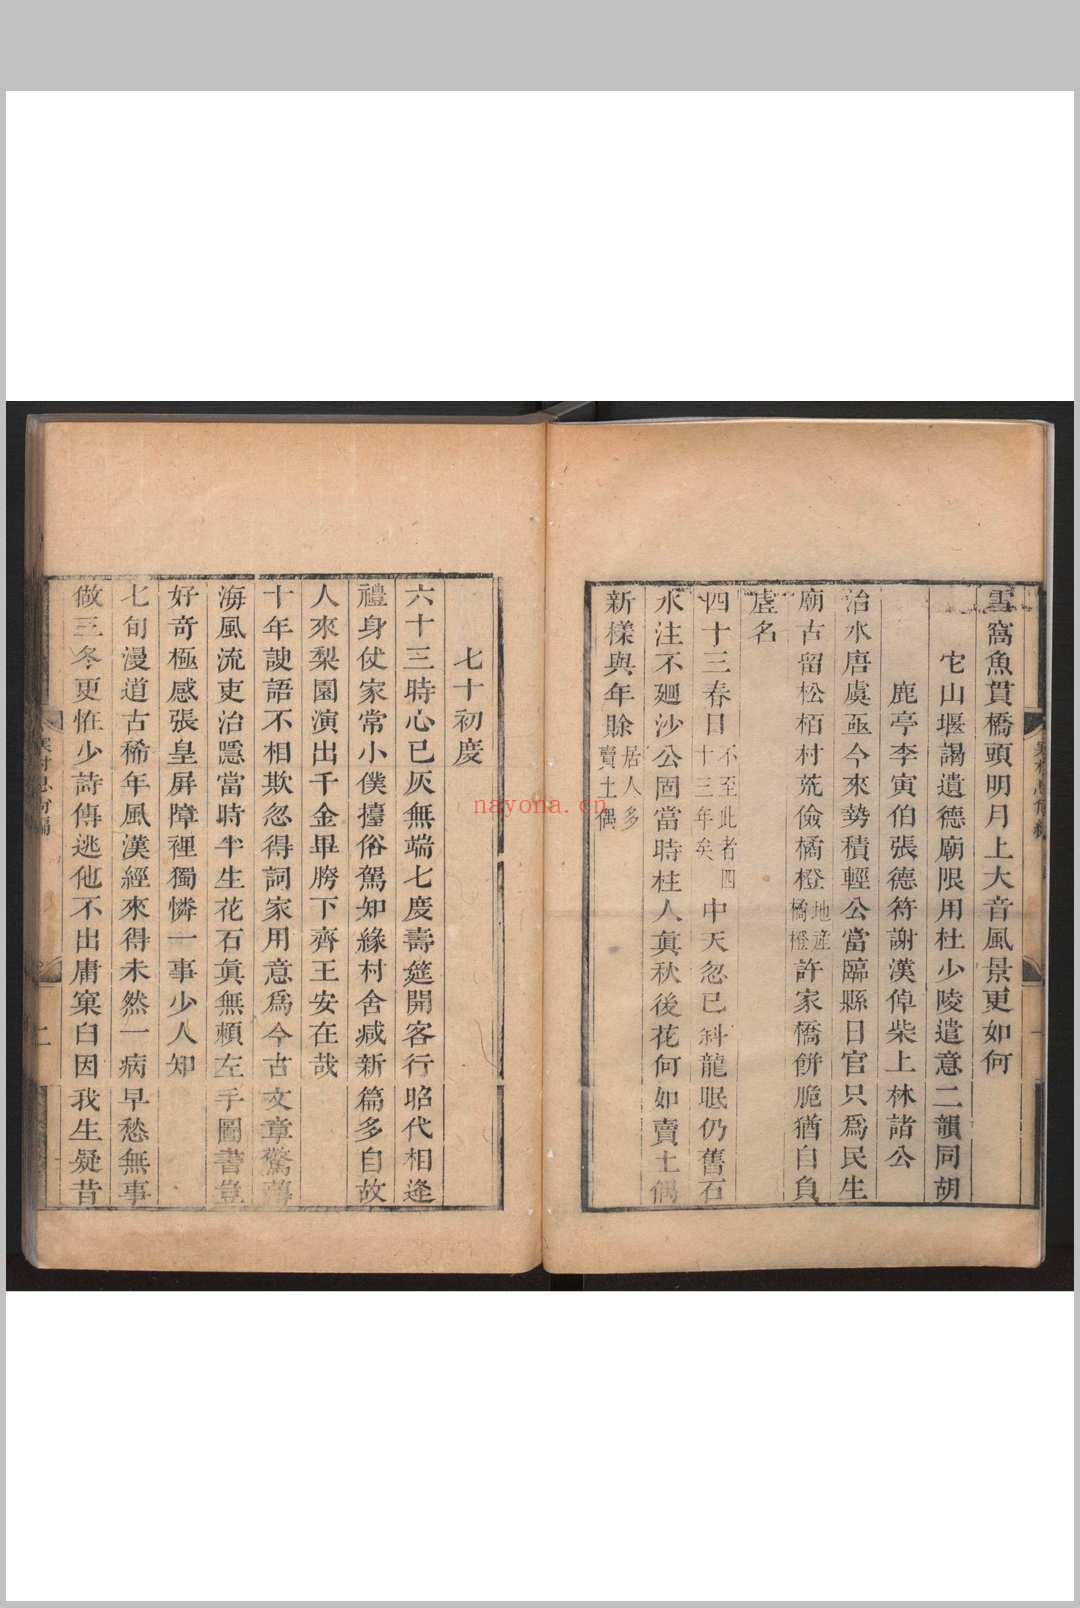 雪窩魚貫橋頭明月上大音風景更如何
它山堰謁遺德廟限用杜少陵遣意二韻同胡
鹿亭李寅伯張德符謝漢倬柴上林諸公
治水唐虞亟今來勢積輕公當臨縣日官只爲民生
廟古留松栢村荒儉橘橙地産橘橙許家橋餅脆猶自負
虛名
四十三春日不至此者四十三年矣中天忽已斜龍眠仍舊石
水注不廻沙公固當時柱人眞秋後花何如賣土偶
新樣與年賖居人多賣土偶
七十初度
六十三時心已灰無端七慶壽筵開客行昭代相逢
禮身仗家常小僕擡俗駕知緣村舍减新篇多自故
人來梨園演出千金畢勝下齊王安在哉
十年諛語不相欺忽得詞家用意爲今古文章驚薄
海風流吏治隱當時半生花石眞無賴左手圖書豈
好奇極感張皇屏障裡獨憐一事少人知
七旬漫道古稀年風漢經來得未然一病早愁無事
做三冬更惟少詩傳逃他不出庸窠臼因我生疑昔
二
nayona.cn